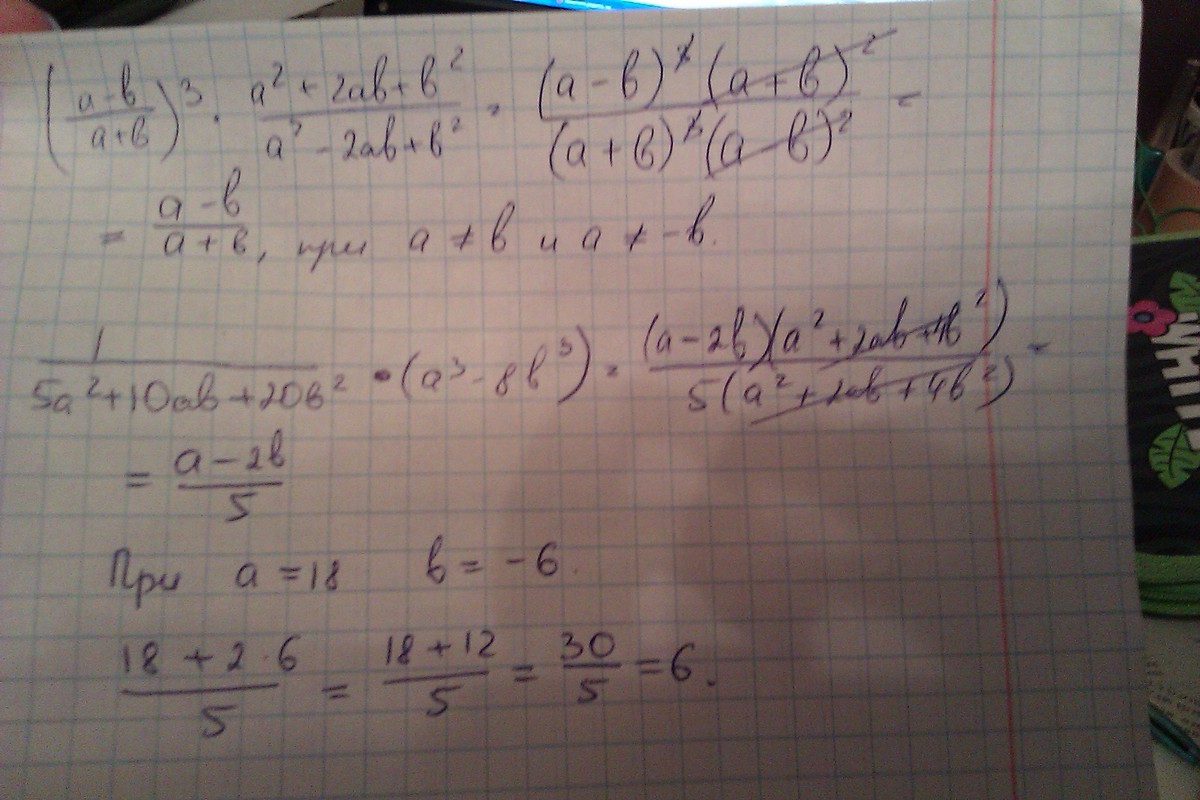 (a-b/a+b)³ · a²+2ab+b²/a²-2ab+b² = (a-b)³(a+b)²/(a+b)³(a-b)² =
= a-b/a+b, при a≠b и a≠-b.
1/5a²+10ab+20b² · (a³-8b³) = (a-2b)(a²+2ab+4b²)/5(a²+2ab+4b²) =
= a-2b/5
При a=18 b=-6.
18+2·6/5 = 18+12/5 = 30/5 = 6.